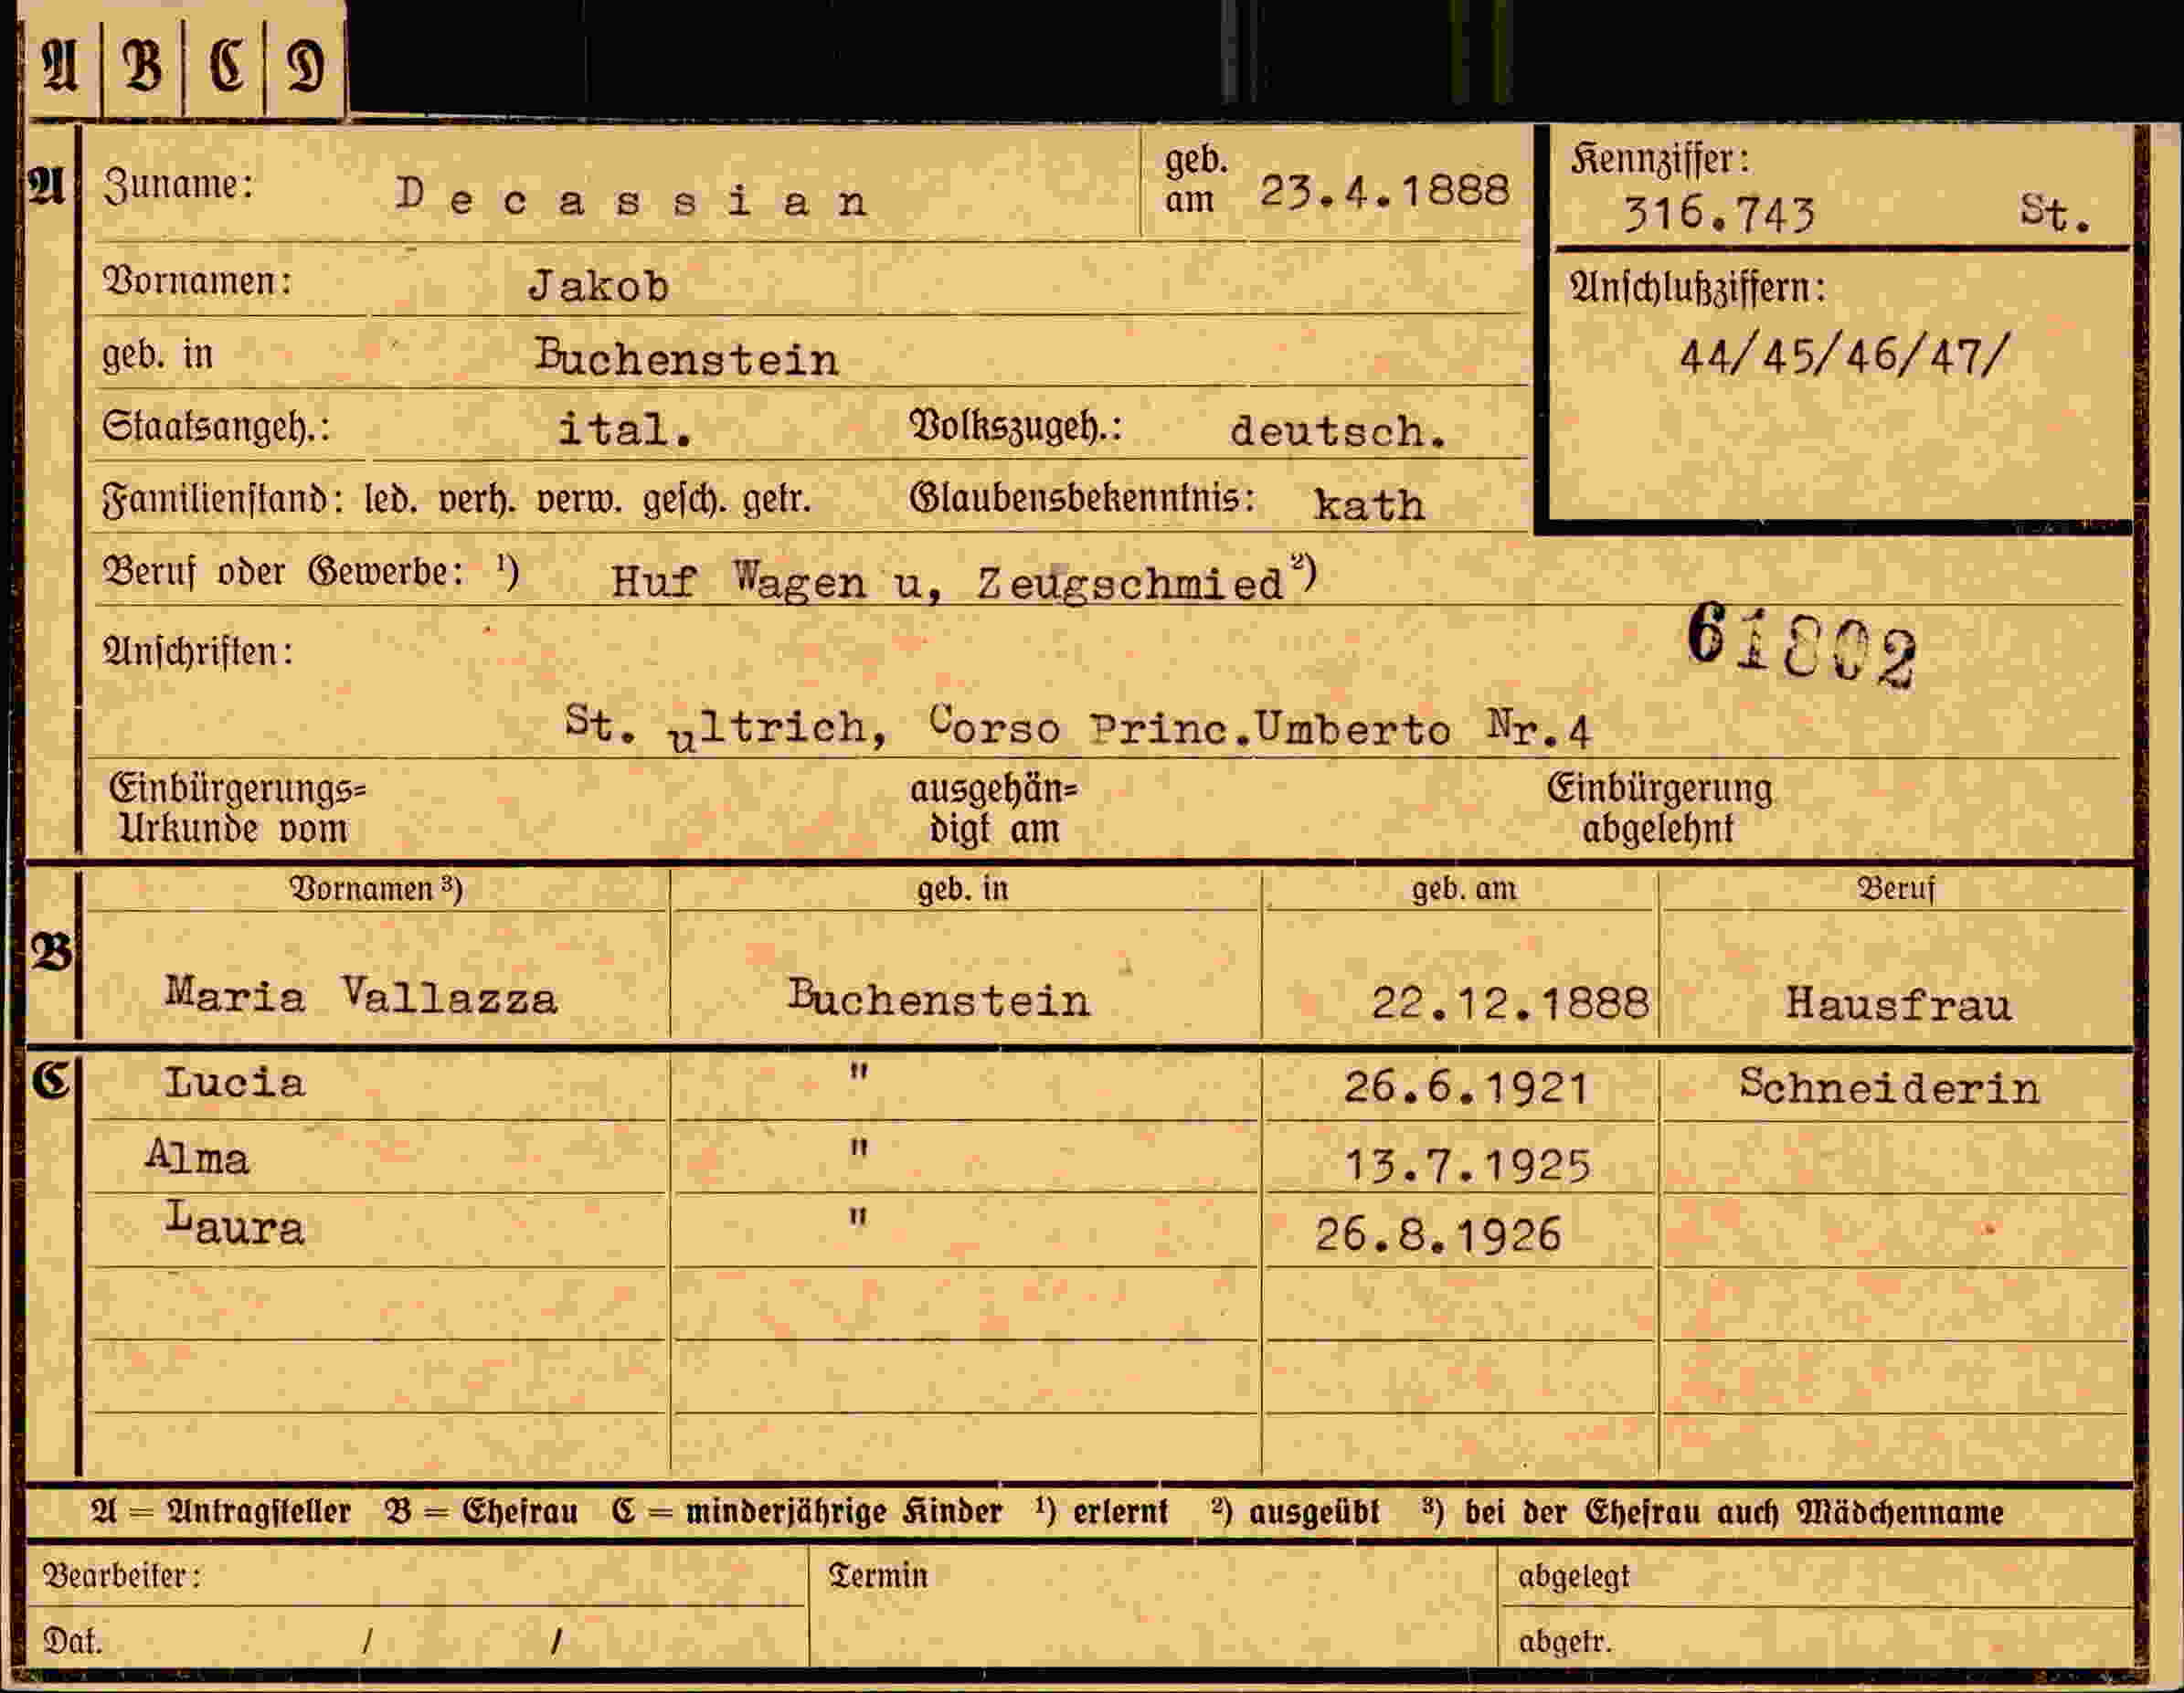 A B C D
A Zuname: Decassian geb. am 23.4.1888
Kennziffer: 316.743 St.
Vornamen: Jakob
Anschlußziffern: 44/45/46/47/
geb. in Buchenstein
Staatsangeh.: ital. Volkszugeh.: deutsch.
Familienstand: led. verh. verw. gesch. getr. Glaubensbekenntnis: kath
Beruf oder Gewerbe: ¹) Huf Wagen u, Zeugschmied ²)
61802
Anschriften:
St. ultrich, Corso Princ.Umberto Nr.4
Einbürgerungs= Urkunde vom ausgehän= digt am Einbürgerung abgelehnt
Vornamen ³) geb. in geb. am Beruf
B Maria Vallazza Buchenstein 22.12.1888 Hausfrau
C Lucia " 26.6.1921 Schneiderin
Alma " 13.7.1925
Laura " 26.8.1926
A = Antragsteller B = Ehefrau C = minderjährige Kinder ¹) erlernt ²) ausgeübt ³) bei der Ehefrau auch Mädchenname
Bearbeiter: Termin abgelegt
Dat. / / abgetr.